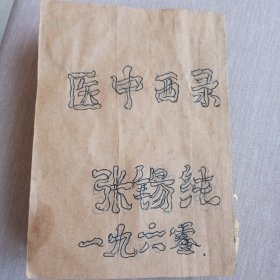 医中西录
张锡纯
一九六零